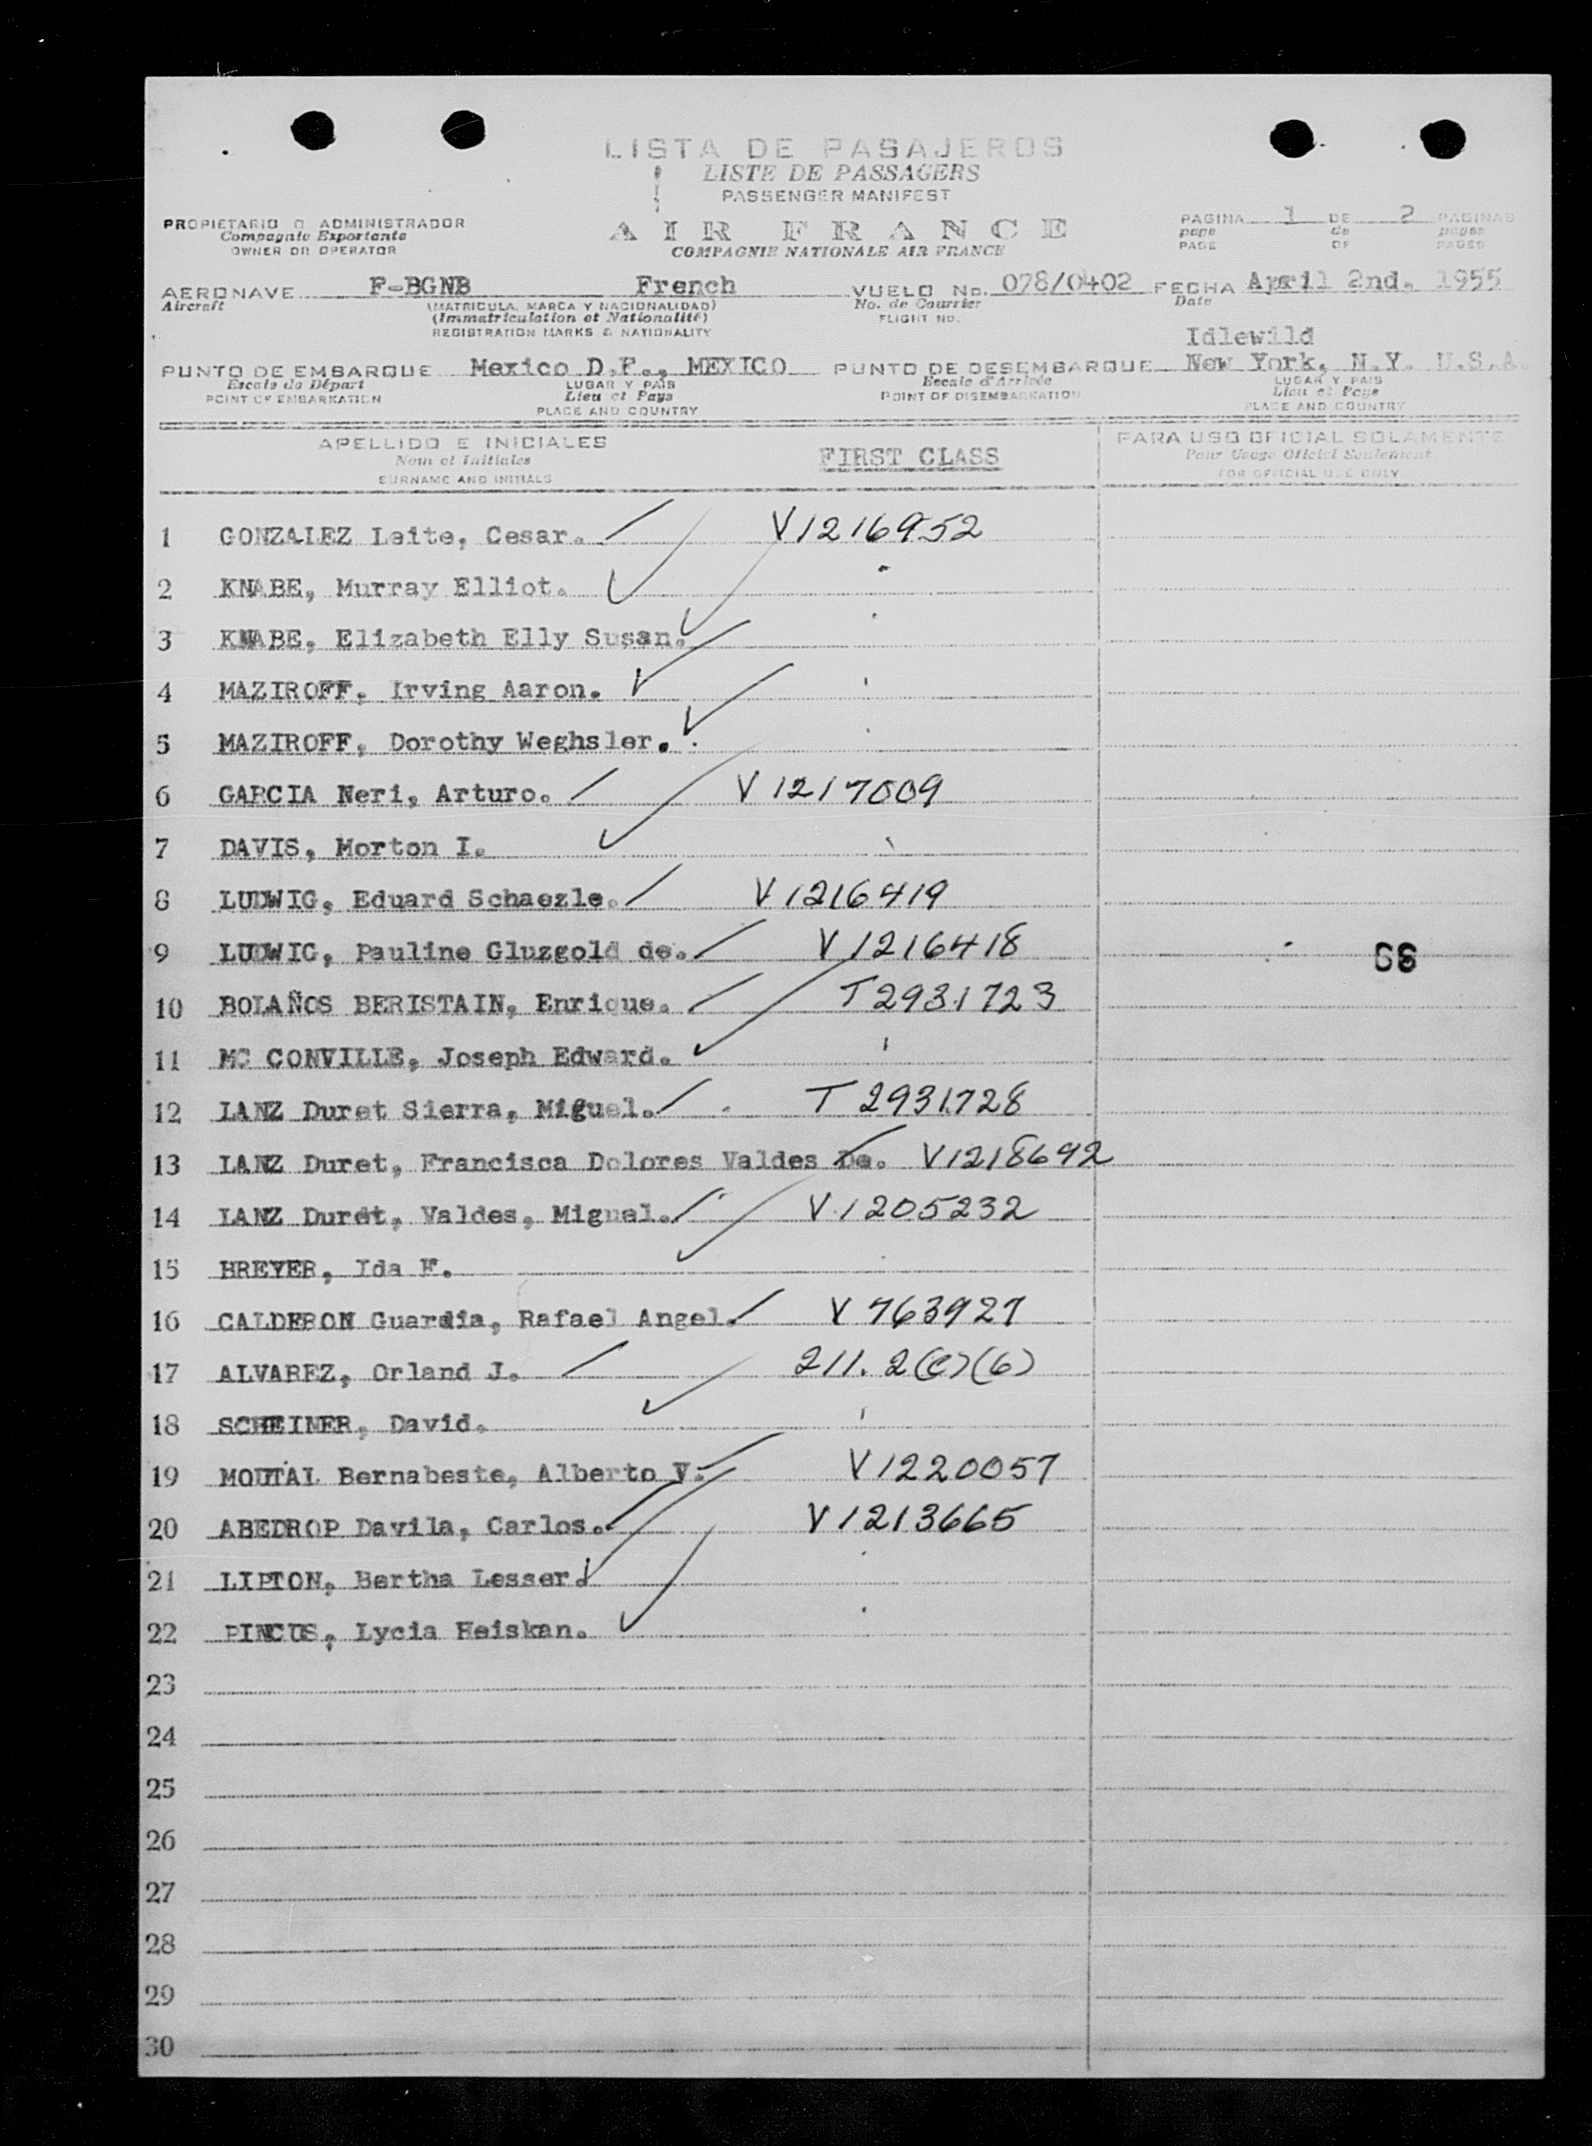 LISTA DE PASAJEROS
LISTE DE PASSAGERS
PASSENGER MANIFEST
PROPIETARIO O ADMINISTRADOR
Compagnie Exportante
OWNER OR OPERATOR
AIR FRANCE
COMPAGNIE NATIONALE AIR FRANCE
PAGINA 1 DE 2 PAGINAS
page de pages
PAGE OF PAGES
AERONAVE F-BGNB French VUELO No. 078/0402 FECHA April 2nd. 1955
Aircraft (MATRICULA, MARCA Y NACIONALIDAD) No. de Courrier Date
(Immatriculation et Nationalité) FLIGHT NO.
REGISTRATION MARKS & NATIONALITY
Idlewild
PUNTO DE EMBARQUE Mexico D.F., MEXICO PUNTO DE DESEMBARQUE New York, N.Y. U.S.A.
Escale de Départ LUGAR Y PAIS Escale d'Arrivée LUGAR Y PAIS
POINT OF EMBARKATION Lieu et Pays POINT OF DISEMBARKATION Lieu et Pays
PLACE AND COUNTRY PLACE AND COUNTRY
APELLIDO E INICIALES FIRST CLASS PARA USO OFICIAL SOLAMENTE
Nom et Initiales Pour Usage Officiel Seulement
SURNAME AND INITIALS FOR OFFICIAL USE ONLY
1 GONZALEZ Leite, Cesar. V1216952
2 KNABE, Murray Elliot.
3 KNABE, Elizabeth Elly Susan.
4 MAZIROFF, Irving Aaron.
5 MAZIROFF, Dorothy Weghsler.
6 GARCIA Neri, Arturo. V 1217009
7 DAVIS, Morton I.
8 LUDWIG, Eduard Schaezle. V 1216419
9 LUDWIG, Pauline Gluzgold de. V 1216418
10 BOLAÑOS BERISTAIN, Enrique. T2931723
11 MC CONVILLE, Joseph Edward.
12 LANZ Duret Sierra, Miguel. T 2931728
13 LANZ Duret, Francisca Dolores Valdes De. V1218692
14 LANZ Durét, Valdes, Miguel. V 1205232
15 BREYER, Ida F.
16 CALDERON Guardia, Rafael Angel. V 763927
17 ALVAREZ, Orland J. 211.2(c)(6)
18 SCHEINER, David.
19 MOUTAL Bernabeste, Alberto V. V1220057
20 ABEDROP Davila, Carlos. V1213665
21 LIPTON, Bertha Lesser.
22 PINCUS, Lycia Heiskan.
23
24
25
26
27
28
29
30